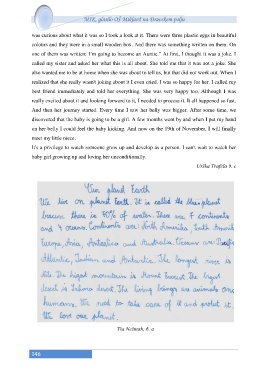 MIK, glasilo OŠ Maksimilijana Držečnika
was curious about what it was so I took a look at it. There were three plastic eggs in beautiful
colours and they were in a small wooden box. And there was something written on them. On
one of them was written: I'm going to become an Auntie." At first, I thought it was a joke. I
called my sister and asked her what this is all about. She told me that it was not a joke. She
also wanted me to be at home when she was about to tell us, but that did not work out. When I
realized that she really wasn't joking about it I even cried. I was so happy for her. I called my
best friend immediately and told her everything. She was very happy too. Although I was
really excited about it and looking forward to it, I needed to process it. It all happened so fast.
And then her journey started. Every time I saw her belly was bigger. After some time, we
discovered that the baby is going to be a girl. A few months went by and when I put my hand
on her belly I could feel the baby kicking. And now on the 19th of November, I will finally
meet my little niece.
It's a privilege to watch someone grow up and develop as a person. I can't wait to watch her
baby girl growing up and loving her unconditionally.
9. c
Our planet Earth
We live on planet Earth. It is called the blue planet
because there is 70% of water. There are 7 continents
and 4 oceans. Continents are: North Amerika, South Amerik
Europa, Asia, Antarctica and Australia. Oceans are: Pacific
Atlantic, Indian and Antarctic. The longest river is
Nile. The bigest mountain is Mount Everest. The bigest
desert is Sahara desert. The living beings are animals and
humans. We need to take care of it and protect it.
We love our planet.
Tia 8. a
146